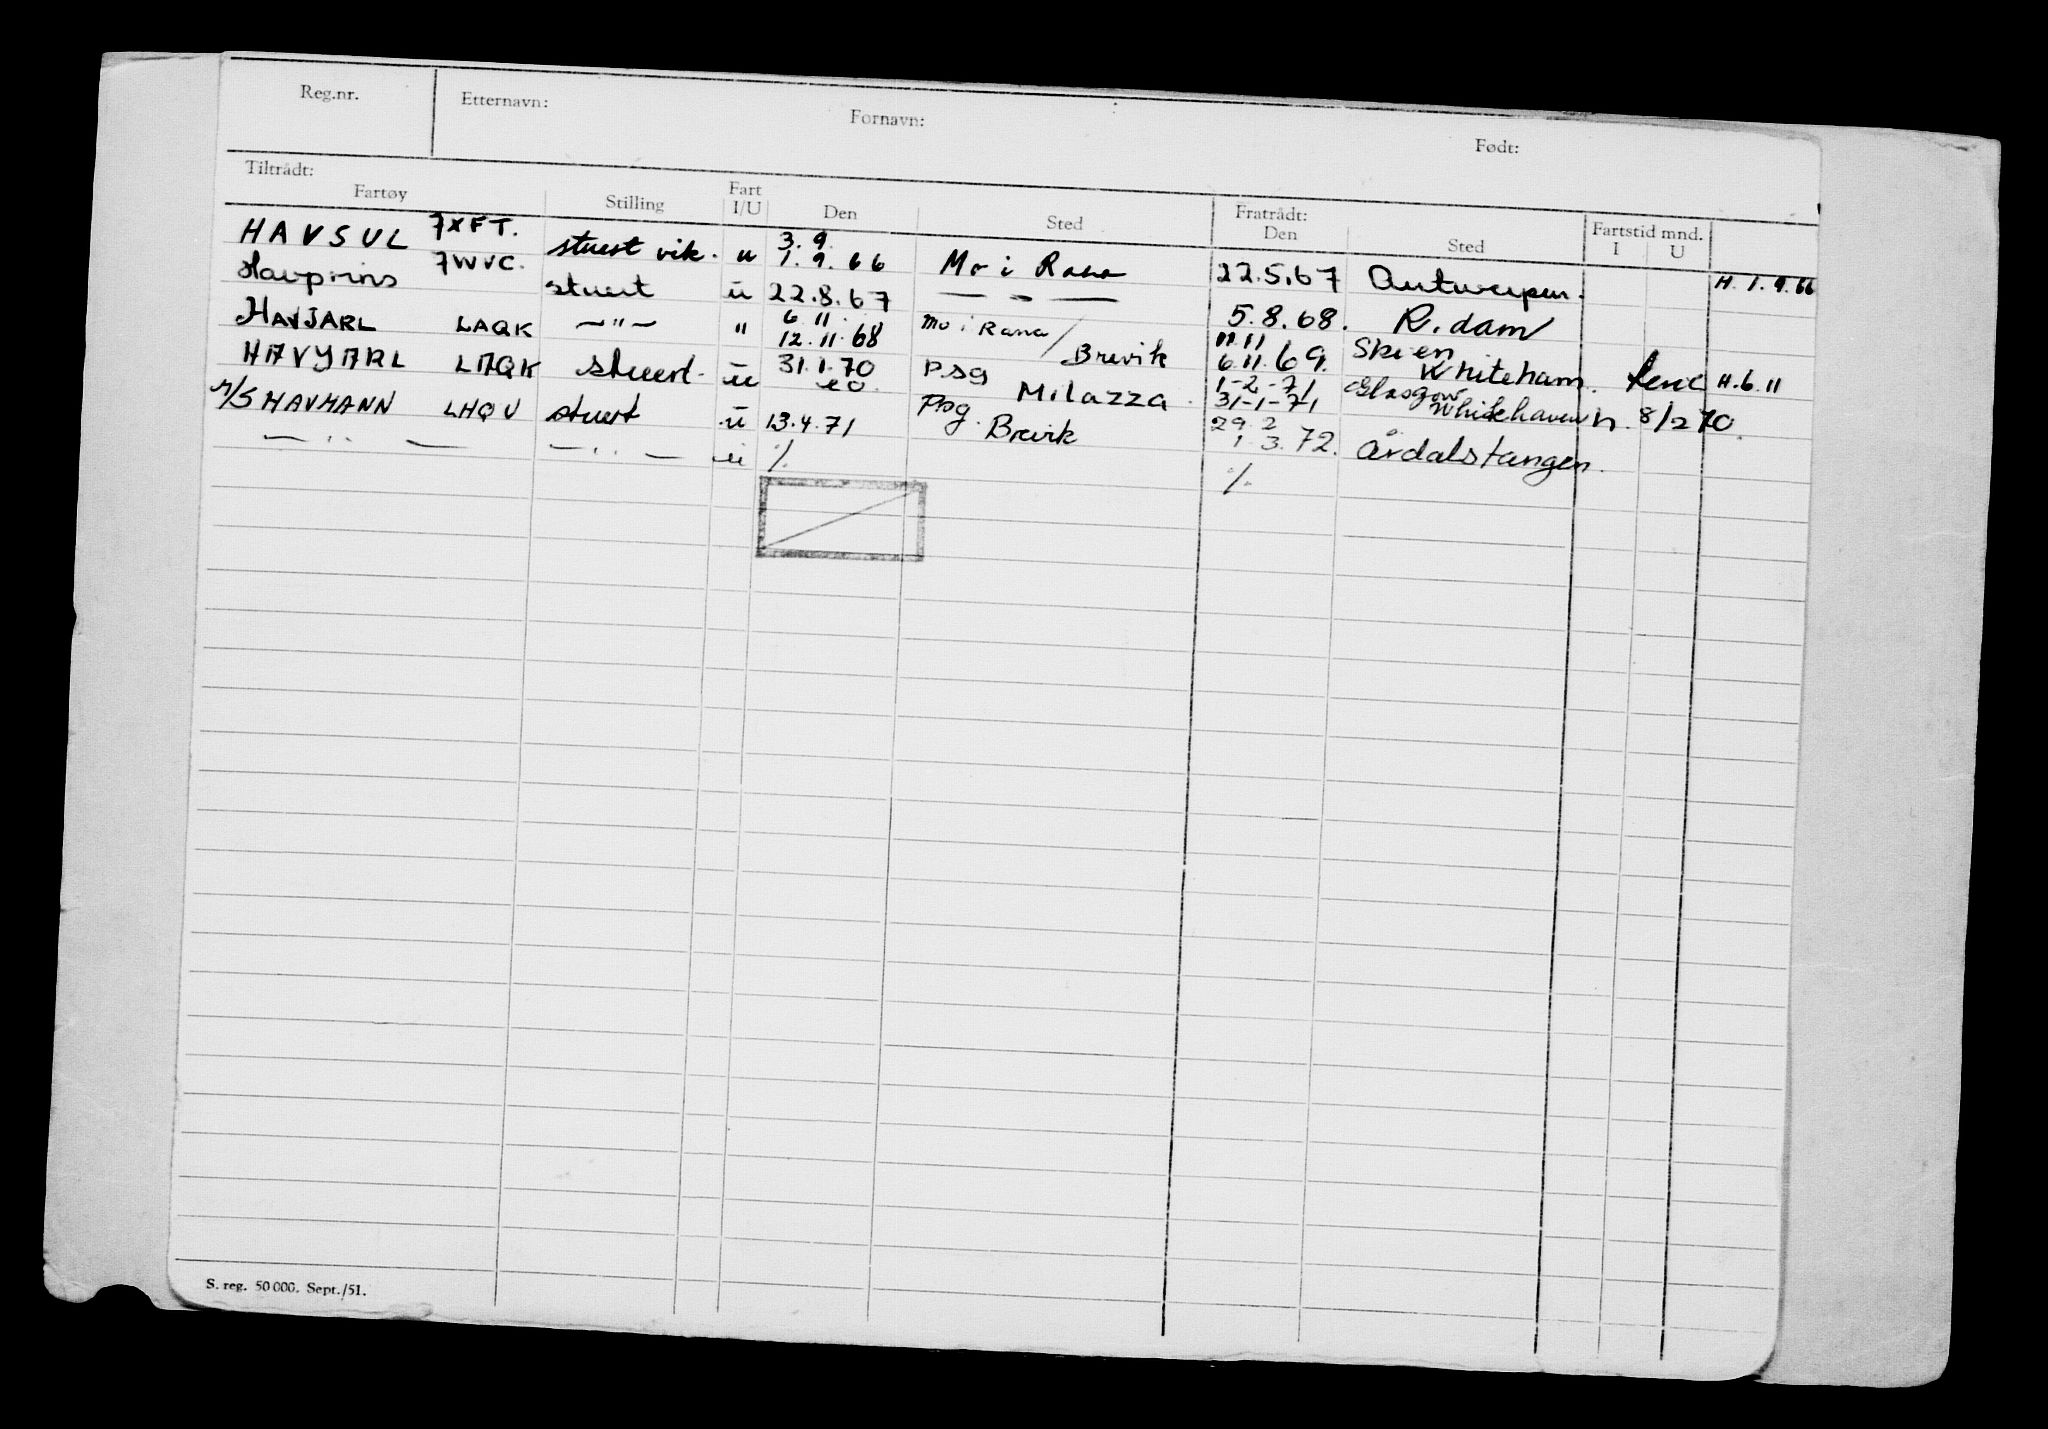 Reg.nr. Etternavn: Fornavn: Født:
Tiltrådt: Fratrådt:
Fartøy Stilling Fart I/U Den Sted Den Sted Fartstid mnd. I U
HAVSUL 7XFT. stuert vik. u 3.9. 1.9.66 Mo i Rana 22.5.67 Antwerpen. H. 1.9.66
Havprins 7WVC. stuert u 22.8.67 — " — 5.8.68. R.dam
HAVJARL LAQK — " — " 6.11. 12.11.68 Mo i Rana / Brevik 11.11 6.11.69. Skien Whiteham. H.6.11
HAVJARL LAQK stuert. u 31.1.70 psg Milazza. 1-2-71 31-1-71 Glasgow Whitehaven h. 8/2 70.
M/S HAVMANN LHQV stuert u 13.4.71 Psg. Brevik 29.2 1.3.72. Årdalstangen.
— " — — " — u % %
S. reg. 50 000. Sept./51.